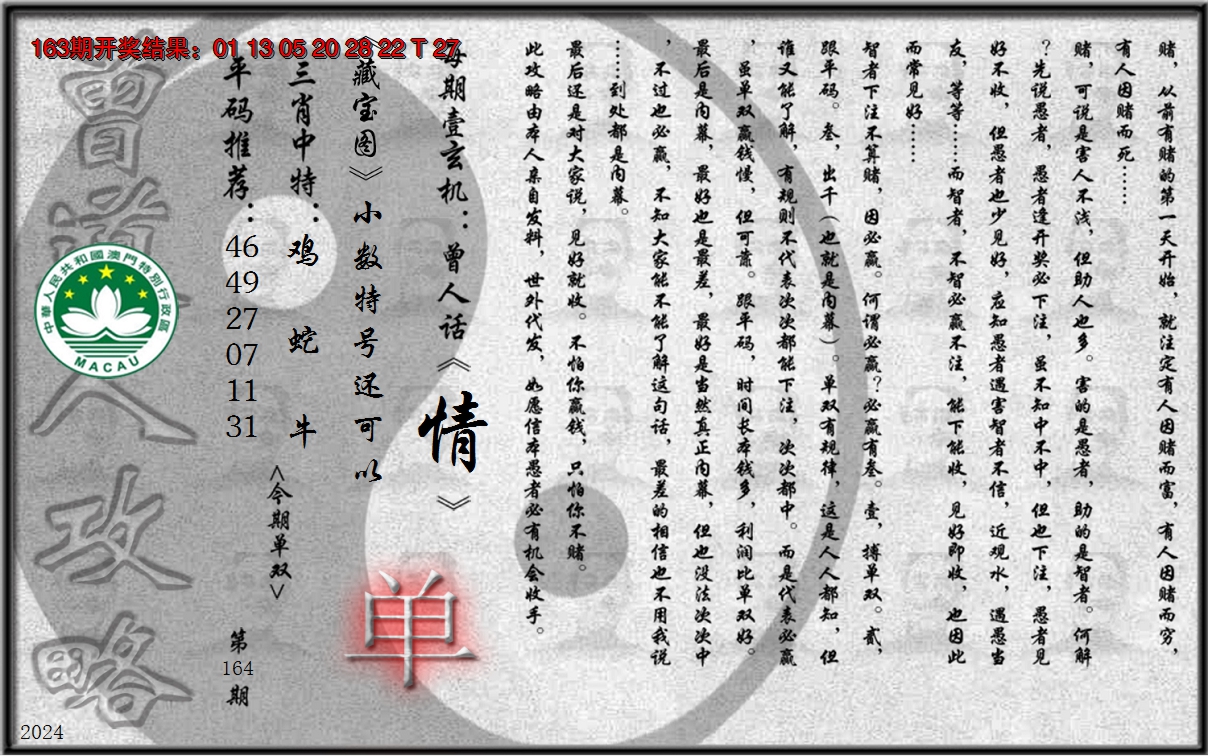 163期开奖结果：01 13 05 20 28 22 T 27
赌，从前有赌的第一天开始，就注定有人因赌而富，有人因赌而穷，
有人因赌而死……
赌，可说是害人不浅，但助人也多。害的是愚者，助的是智者。何解
？先说愚者，愚者逢开奖必下注，虽不知中不中，但也下注，愚者见
好不收，但愚者也少见好，应知愚者遇害智者不信，近观水，遇愚当
友，等等……而智者，不智必赢不注，能下能收，见好即收，也因此
而常见好……
智者下注不算赌，因必赢。何谓必赢？必赢有叁。壹，搏单双。贰，
跟平码。叁，出千（也就是内幕）。单双有规律，这是人人都知，但
谁又能了解，有规则不代表次次都能下注，次次都中。而是代表必赢
，虽单双赢钱慢，但可靠。跟平码，时间长本钱多，利润比单双好。
最后是内幕，最好也是最差，最好是当然真正内幕，但也没法次次中
，不过也必赢，不知大家能不能了解这句话，最差的相信也不用我说
……到处都是内幕。
最后还是对大家说，见好就收。不怕你赢钱，只怕你不赌。
此攻略由本人亲自发料，世外代发，如愿信本愚者必有机会收手。
每期壹玄机：曾人话《情》
《藏宝图》小数特号还可以
单
三肖中特：鸡 蛇 牛
<今期单双>
平码推荐：46 49 27 07 11 31
第164期
曾道人攻略
中華人民共和國澳門特別行政區
MACAU
2024